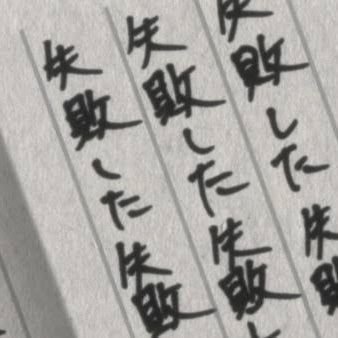 失敗した失敗
失敗した失敗し
失敗した失敗